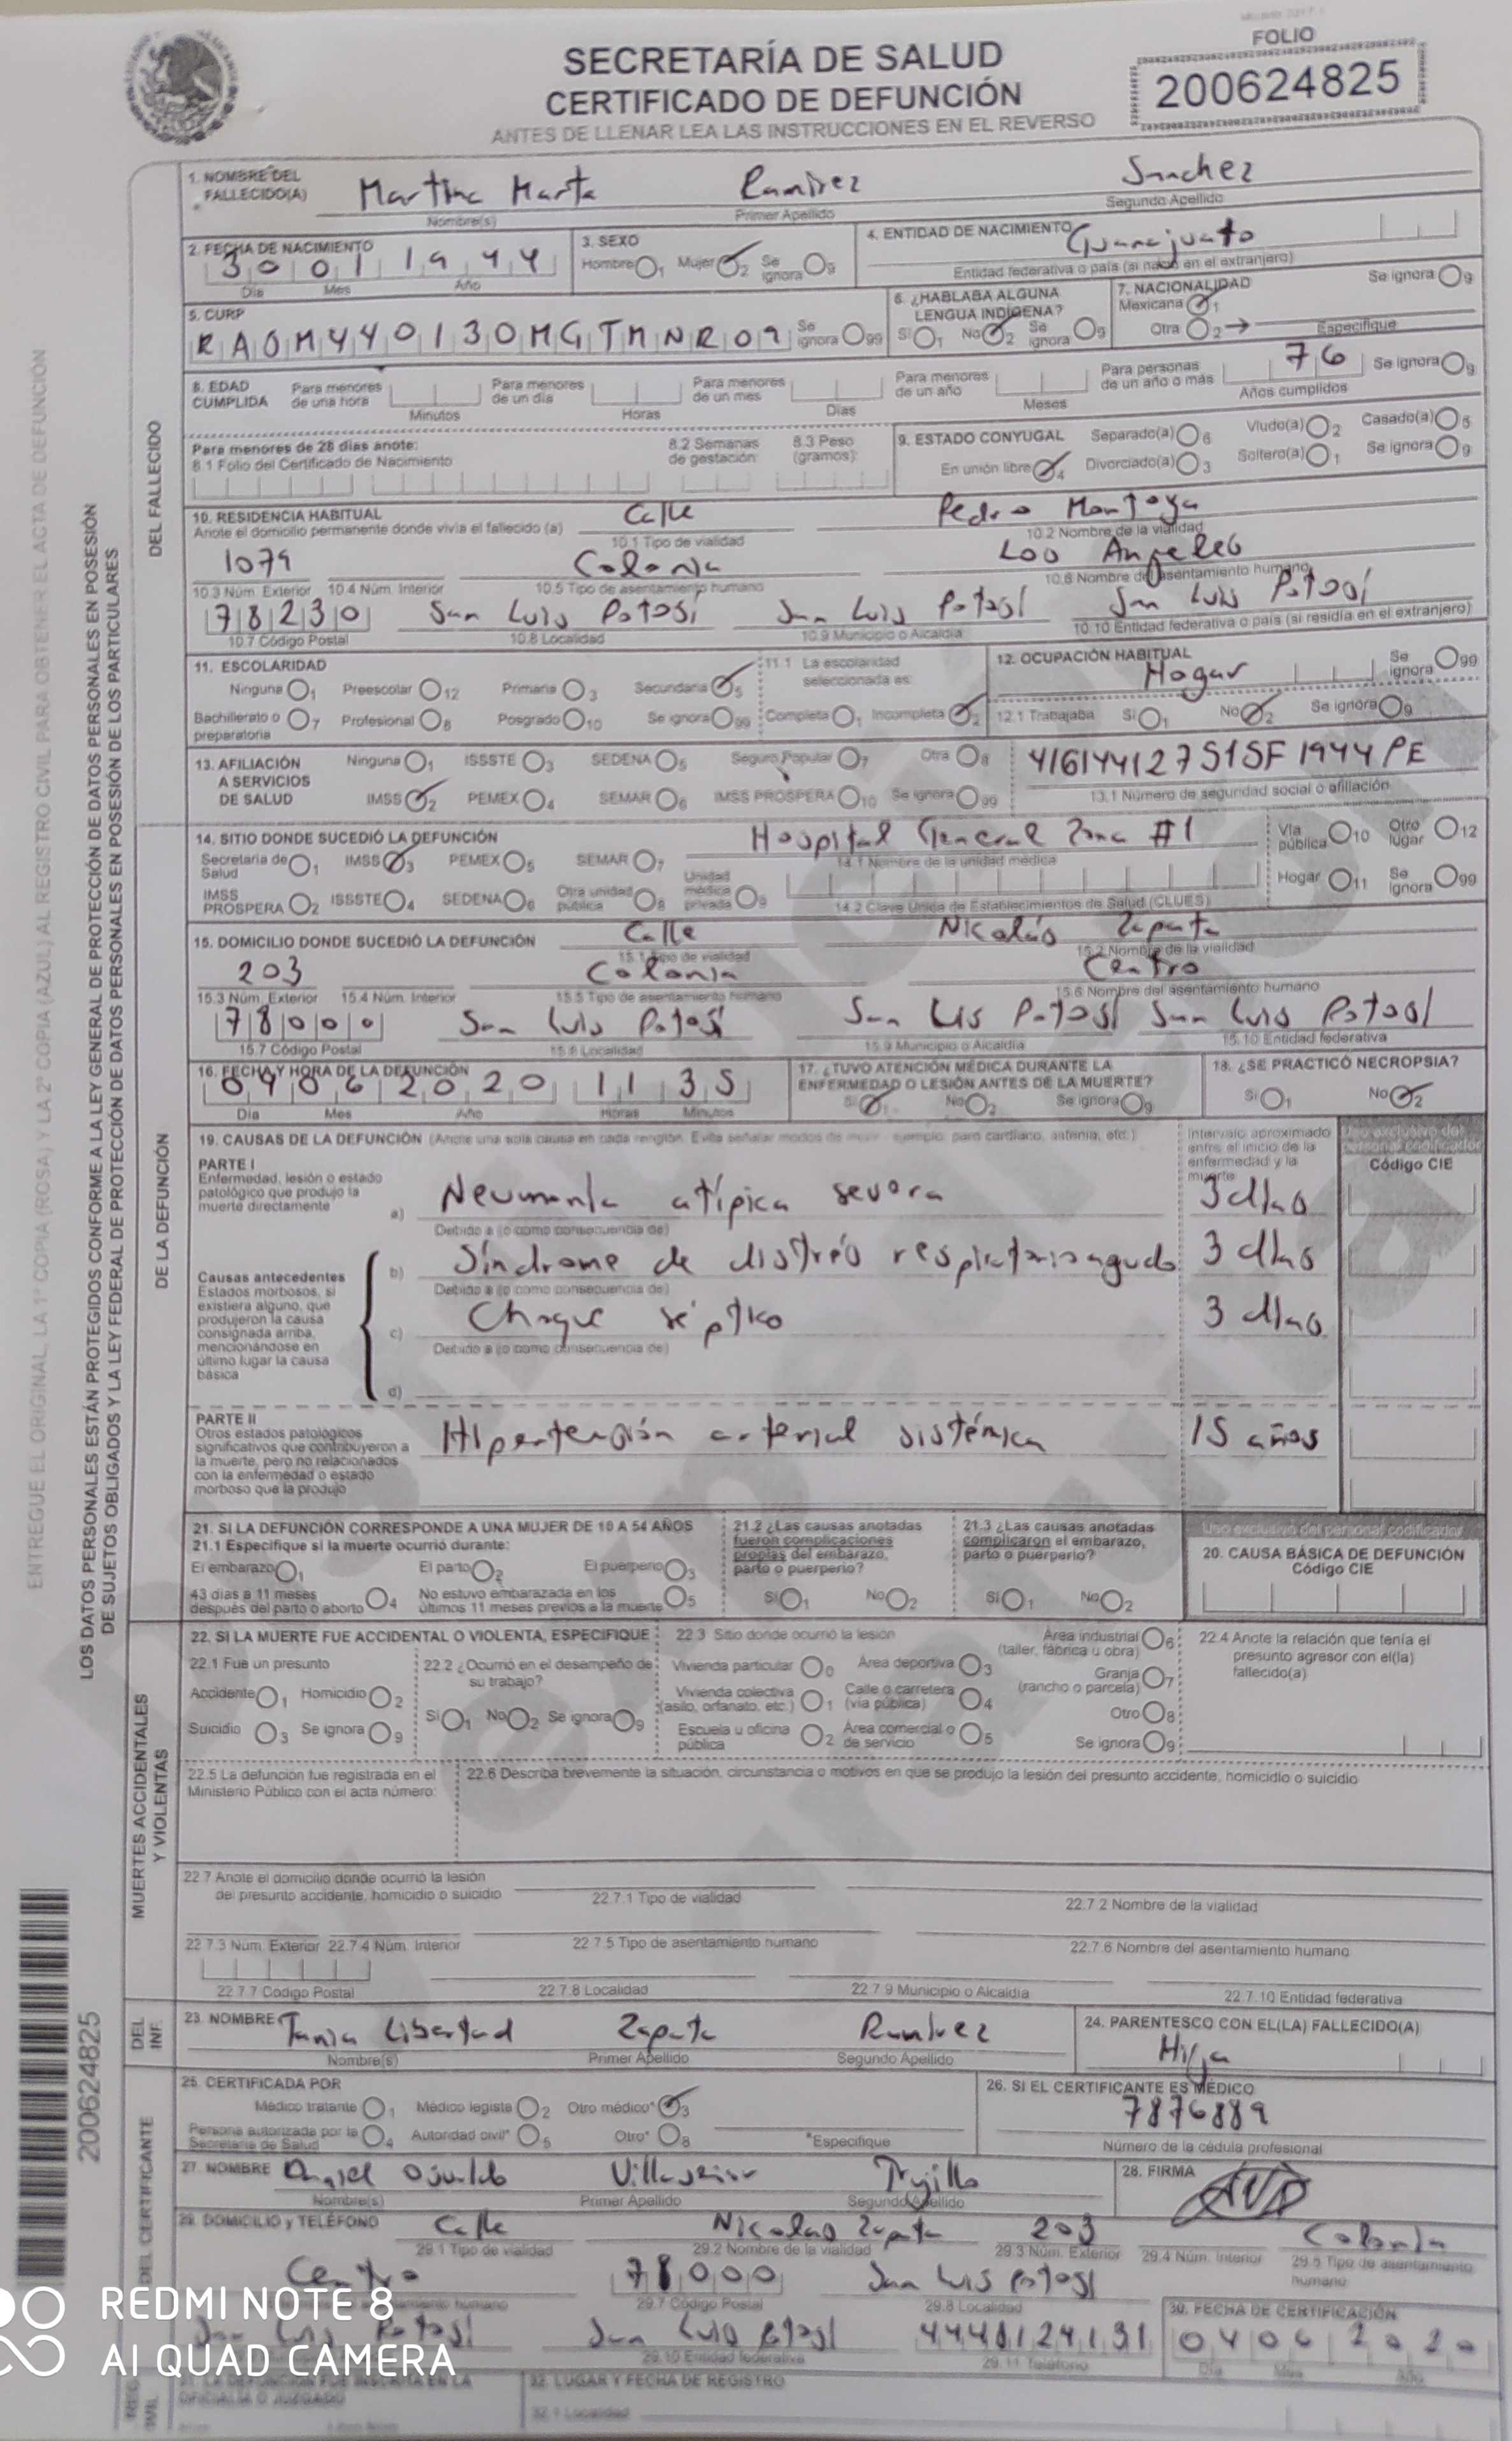 FOLIO
200624825
SECRETARÍA DE SALUD
CERTIFICADO DE DEFUNCIÓN
ANTES DE LLENAR LEA LAS INSTRUCCIONES EN EL REVERSO
ENTREGUE EL ORIGINAL, LA 1ª COPIA (ROSA) Y LA 2ª COPIA (AZUL) AL REGISTRO CIVIL PARA OBTENER EL ACTA DE DEFUNCIÓN
LOS DATOS PERSONALES ESTÁN PROTEGIDOS CONFORME A LA LEY GENERAL DE PROTECCIÓN DE DATOS PERSONALES EN POSESIÓN
DE SUJETOS OBLIGADOS Y LA LEY FEDERAL DE PROTECCIÓN DE DATOS PERSONALES EN POSESIÓN DE LOS PARTICULARES
200624825
DEL FALLECIDO
1. NOMBRE DEL FALLECIDO(A) Martina Marta Ramirez Sanchez
Nombre(s) Primer Apellido Segundo Apellido
2. FECHA DE NACIMIENTO 30 01 1944
Día Mes Año
3. SEXO
Hombre 1 Mujer 2 Se ignora 9
4. ENTIDAD DE NACIMIENTO Guanajuato
Entidad federativa o país (si nació en el extranjero) Se ignora 9
5. CURP
RAOM440130MGTMNR09 Se ignora 99
6. ¿HABLABA ALGUNA LENGUA INDÍGENA?
Sí 1 No 2 Se ignora 9
7. NACIONALIDAD
Mexicana 1
Otra 2 → Especifique
8. EDAD CUMPLIDA Para menores de una hora Minutos Para menores de un día Horas Para menores de un mes Días Para menores de un año Meses Para personas de un año o más 76 Años cumplidos Se ignora 9
Para menores de 28 días anote:
8.1 Folio del Certificado de Nacimiento 8.2 Semanas de gestación: 8.3 Peso (gramos):
9. ESTADO CONYUGAL Separado(a) 6 Viudo(a) 2 Casado(a) 5
En unión libre 4 Divorciado(a) 3 Soltero(a) 1 Se ignora 9
10. RESIDENCIA HABITUAL
Anote el domicilio permanente donde vivía el fallecido (a) Calle Pedro Montoya
10.1 Tipo de vialidad 10.2 Nombre de la vialidad
1079 Colonia Los Angeles
10.3 Núm. Exterior 10.4 Núm. Interior 10.5 Tipo de asentamiento humano 10.6 Nombre del asentamiento humano
78230 San Luis Potosí San Luis Potosí San Luis Potosí
10.7 Código Postal 10.8 Localidad 10.9 Municipio o Alcaldía 10.10 Entidad federativa o país (si residía en el extranjero)
11. ESCOLARIDAD
Ninguna 1 Preescolar 12 Primaria 3 Secundaria 5
Bachillerato o preparatoria 7 Profesional 8 Posgrado 10 Se ignora 99
11.1 La escolaridad seleccionada es:
Completa 1 Incompleta 2
12. OCUPACIÓN HABITUAL Hogar Se ignora 99
12.1 Trabajaba Sí 1 No 2 Se ignora 9
13. AFILIACIÓN A SERVICIOS DE SALUD
Ninguna 1 ISSSTE 3 SEDENA 5 Seguro Popular 7 Otra 8
IMSS 2 PEMEX 4 SEMAR 6 IMSS PROSPERA 10 Se ignora 99
4161441275 1SF1944PE
13.1 Número de seguridad social o afiliación
DE LA DEFUNCIÓN
14. SITIO DONDE SUCEDIÓ LA DEFUNCIÓN Hospital General Zona #1
Secretaría de Salud 1 IMSS 3 PEMEX 5 SEMAR 7 14.1 Nombre de la unidad médica
IMSS PROSPERA 2 ISSSTE 4 SEDENA 6 Otra unidad pública 8 Unidad médica privada 9 14.2 Clave Única de Establecimientos de Salud (CLUES)
Vía pública 10 Otro lugar 12
Hogar 11 Se ignora 99
15. DOMICILIO DONDE SUCEDIÓ LA DEFUNCIÓN Calle Nicolás Zapata
15.1 Tipo de vialidad 15.2 Nombre de la vialidad
203 Colonia Centro
15.3 Núm. Exterior 15.4 Núm. Interior 15.5 Tipo de asentamiento humano 15.6 Nombre del asentamiento humano
78000 San Luis Potosí San Luis Potosí San Luis Potosí
15.7 Código Postal 15.8 Localidad 15.9 Municipio o Alcaldía 15.10 Entidad federativa
16. FECHA Y HORA DE LA DEFUNCIÓN
04 06 2020 11 35
Día Mes Año Horas Minutos
17. ¿TUVO ATENCIÓN MÉDICA DURANTE LA ENFERMEDAD O LESIÓN ANTES DE LA MUERTE?
Sí 1 No 2 Se ignora 9
18. ¿SE PRACTICÓ NECROPSIA?
Sí 1 No 2
19. CAUSAS DE LA DEFUNCIÓN (Anote una sola causa en cada renglón. Evite señalar modos de morir, ejemplo: paro cardiaco, astenia, etc.)
Intervalo aproximado entre el inicio de la enfermedad y la muerte
Uso exclusivo del personal codificador
Código CIE
PARTE I
Enfermedad, lesión o estado patológico que produjo la muerte directamente
a) Neumonía atípica severa 3 días
Debido a (o como consecuencia de)
Causas antecedentes
Estados morbosos, si existiera alguno, que produjeron la causa consignada arriba, mencionándose en último lugar la causa básica
b) Síndrome de distrés respiratorio agudo 3 días
Debido a (o como consecuencia de)
c) Choque séptico 3 días
Debido a (o como consecuencia de)
d)
PARTE II
Otros estados patológicos significativos que contribuyeron a la muerte, pero no relacionados con la enfermedad o estado morboso que la produjo
Hipertensión arterial sistémica 15 años
21. SI LA DEFUNCIÓN CORRESPONDE A UNA MUJER DE 10 A 54 AÑOS
21.1 Especifique si la muerte ocurrió durante:
El embarazo 1 El parto 2 El puerperio 3
43 días a 11 meses después del parto o aborto 4 No estuvo embarazada en los últimos 11 meses previos a la muerte 5
21.2 ¿Las causas anotadas fueron complicaciones propias del embarazo, parto o puerperio?
Sí 1 No 2
21.3 ¿Las causas anotadas complicaron el embarazo, parto o puerperio?
Sí 1 No 2
Uso exclusivo del personal codificador
20. CAUSA BÁSICA DE DEFUNCIÓN
Código CIE
MUERTES ACCIDENTALES Y VIOLENTAS
22. SI LA MUERTE FUE ACCIDENTAL O VIOLENTA, ESPECIFIQUE
22.1 Fue un presunto
Accidente 1 Homicidio 2
Suicidio 3 Se ignora 9
22.2 ¿Ocurrió en el desempeño de su trabajo?
Sí 1 No 2 Se ignora 9
22.3 Sitio donde ocurrió la lesión
Vivienda particular 0 Área deportiva 3 Área industrial (taller, fábrica u obra) 6
Vivienda colectiva (asilo, orfanato, etc.) 1 Calle o carretera (vía pública) 4 Granja (rancho o parcela) 7
Escuela u oficina pública 2 Área comercial o de servicio 5 Otro 8
Se ignora 9
22.4 Anote la relación que tenía el presunto agresor con el(la) fallecido(a)
22.5 La defunción fue registrada en el Ministerio Público con el acta número:
22.6 Describa brevemente la situación, circunstancia o motivos en que se produjo la lesión del presunto accidente, homicidio o suicidio
22.7 Anote el domicilio donde ocurrió la lesión del presunto accidente, homicidio o suicidio
22.7.1 Tipo de vialidad 22.7.2 Nombre de la vialidad
22.7.3 Núm. Exterior 22.7.4 Núm. Interior 22.7.5 Tipo de asentamiento humano 22.7.6 Nombre del asentamiento humano
22.7.7 Código Postal 22.7.8 Localidad 22.7.9 Municipio o Alcaldía 22.7.10 Entidad federativa
DEL INF.
23. NOMBRE Tania Libertad Zapata Ramirez
Nombre(s) Primer Apellido Segundo Apellido
24. PARENTESCO CON EL(LA) FALLECIDO(A)
Hija
DEL CERTIFICANTE
25. CERTIFICADA POR
Médico tratante 1 Médico legista 2 Otro médico* 3
Persona autorizada por la Secretaría de Salud 4 Autoridad civil* 5 Otro* 8 *Especifique
26. SI EL CERTIFICANTE ES MÉDICO
7876889
Número de la cédula profesional
27. NOMBRE Osvaldo Villaseñor Trujillo
Nombre(s) Primer Apellido Segundo Apellido
28. FIRMA
29. DOMICILIO y TELÉFONO Calle Nicolas Zapata 203 Colonia
29.1 Tipo de vialidad 29.2 Nombre de la vialidad 29.3 Núm. Exterior 29.4 Núm. Interior 29.5 Tipo de asentamiento humano
Centro 78000 San Luis Potosí
asentamiento humano 29.7 Código Postal 29.8 Localidad
San Luis Potosí San Luis Potosí 4448124131
29.10 Entidad federativa 29.11 Teléfono
30. FECHA DE CERTIFICACIÓN
04 06 2020
Día Mes Año
31. LA DEFUNCIÓN FUE INSCRITA EN LA OFICIALÍA O JUZGADO
32. LUGAR Y FECHA DE REGISTRO
32.1 Localidad
REDMI NOTE 8
AI QUAD CAMERA